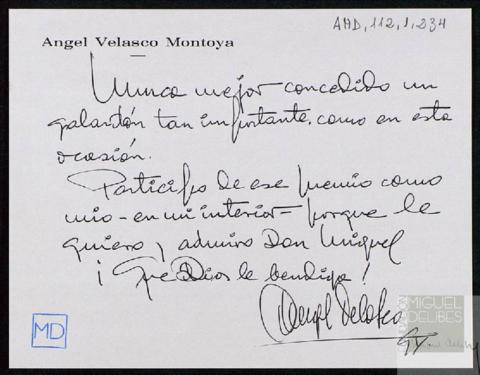 AMD, 112, 1, 234
Angel Velasco Montoya
Nunca mejor concedido un
galardón tan importante, como en esta
ocasión.
Participo de ese premio como
mio - en mi interior - porque le
quiero y admiro Don Miguel
¡ Que Dios le bendiga !
Angel Velasco
MD
MIGUEL
DELIBES